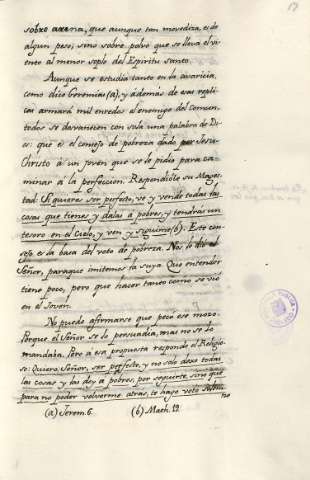 17
sobre arena, que aunque tan movediza, es de
algun peso; sino sobre polvo que se lleva el vi-
ento al menor soplo del Espiritu santo.
Aunque se estudia tanto en la avaricia,
como dice Geremias (a), y además de esas repli-
cas armará mil enredos el enemigo del comun,
todos se davaneten con sola una palabra de Di-
os: que es el consejo de pobreza dado por Jesu-
Christo á un joven que se lo pidio para ca-
minar á la perfeccion. Respondiole su Mages-
tad: Si quieres ser perfecto, ve y vende todas las
cosas que tienes y dalas a pobres, y tendras un
tesoro en el Cielo, y ven y sigueme (b). Este con-
sejo es la basa del voto de pobreza. Nos lo dió el
Señor, paraque imitemos la suya. Que entender
tiene poco, pero que hacer tanto como se vió
en el Joven.
No puede afirmarse que pecó ese mozo.
Porque el Señor se lo persuadia, mas no se lo
mandaba. Pero a esa propuesta respondió el Religio-
so: Quiero, Señor, ser perfecto, y no solo dexo todas
las cosas y las doy a pobres, por seguirte, sino que
para no poder volverme atras, te hago voto
(a) Jerem. 6. (b) Math. 19